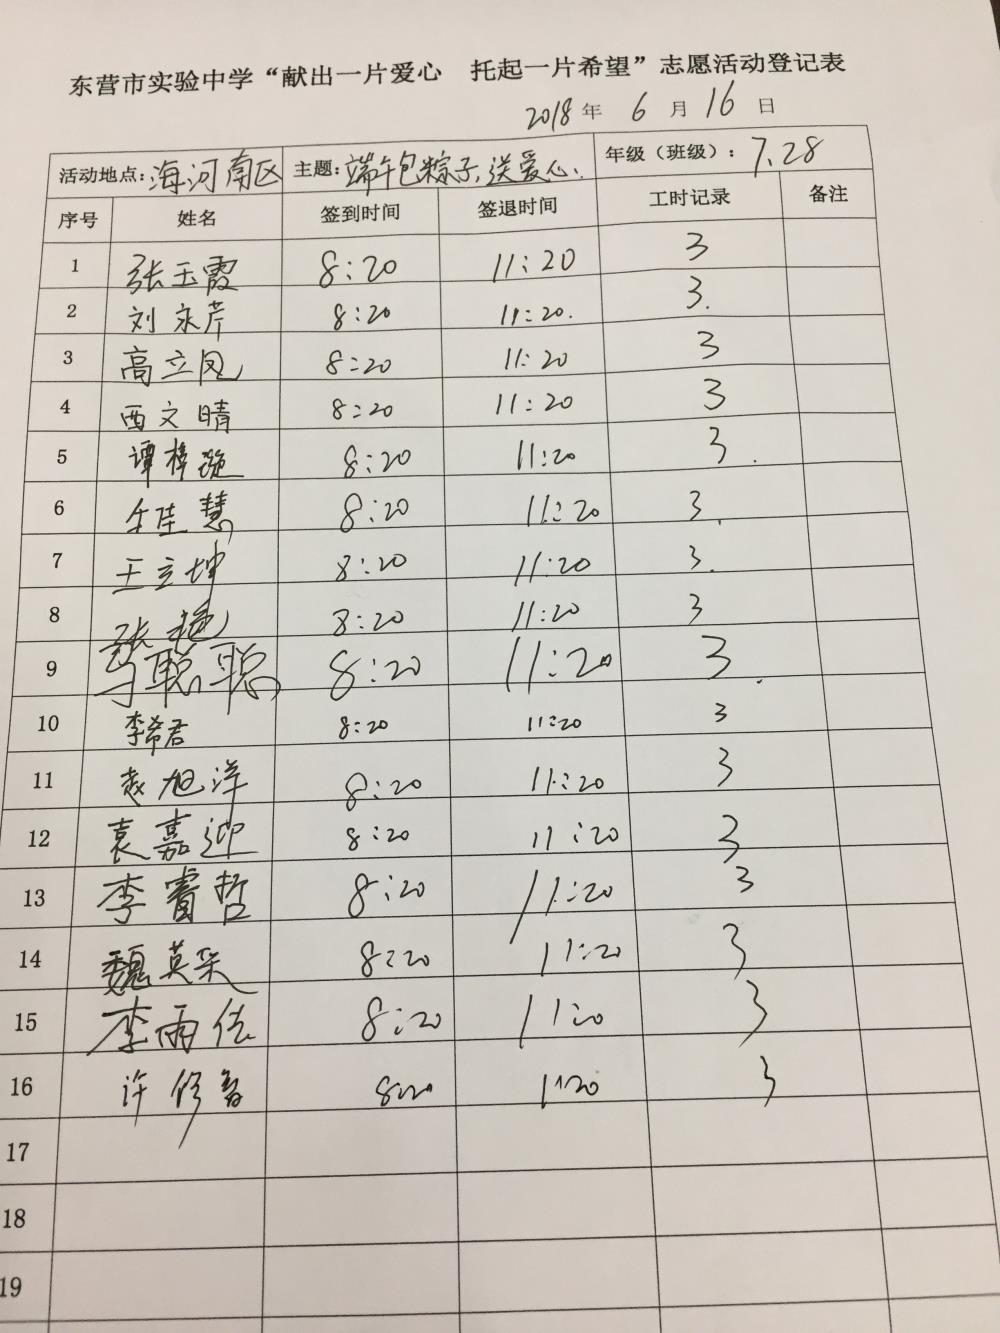 东营市实验中学“献出一片爱心 托起一片希望”志愿活动登记表
2018年 6 月 16 日
活动地点:海河南区 主题:端午包粽子,送爱心. 年级（班级）: 7.28
序号 姓名 签到时间 签退时间 工时记录 备注
1 张玉霞 8:20 11:20 3
2 刘永芹 8:20 11:20. 3.
3 高立凤 8:20 11:20 3
4 西文晴 8:20 11:20 3
5 谭梓 8:20 11:20 3.
6 佳慧 8:20 11:20 3.
7 王立坤 8:20 11:20 3.
8 张艳 8:20 11:20 3
9 马聪聪 8:20 11:20 3.
10 李希君 8:20 11:20 3
11 赵旭洋 8:20 11:20 3
12 袁嘉迎 8:20 11:20 3
13 李睿哲 8:20 11:20 3
14 魏英采 8:20 11:20 3
15 李雨佳 8:20 11:20 3
16 许修 8:20 11:20 3
17
18
19